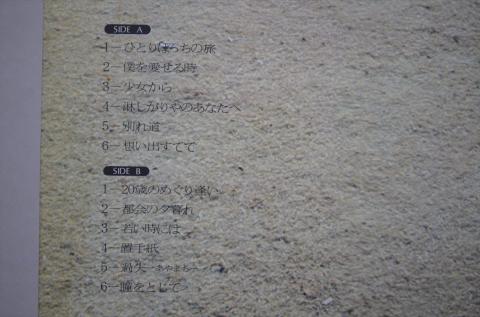 SIDE A
1－ひとりぼっちの旅
2－僕を愛せる時
3－少女から
4－淋しがりやのあなたへ
5－別れ道
6－想い出すてて
SIDE B
1－20歳のめぐり逢い
2－都会の夕暮れ
3－若い時には
4－置手紙
5－過失－あやまち－
6－瞳をとじて